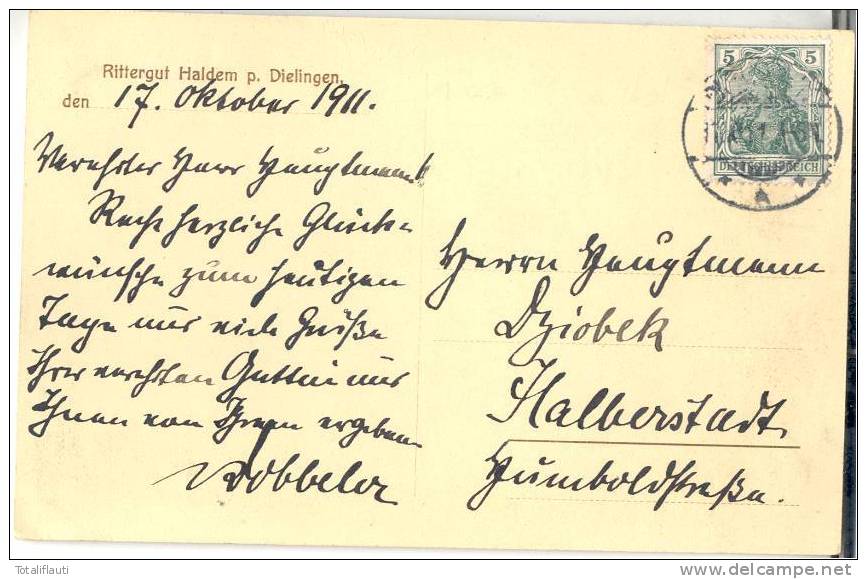 Rittergut Haldem p. Dielingen,
den 17. Oktober 1911.
Verehrter Herr Hauptmann!
Recht herzliche Glück-
wünsche zum heutigen
Tage und viele Grüße
Ihrer verehrten Gattin und
Ihnen von Ihrem ergeben
Döbbeler
5 5
DEUTSCHES REICH
A
Herrn Hauptmann
Dziobek
Halberstadt
Humboldstraße.
Totaliflauti
www.delcampe.net